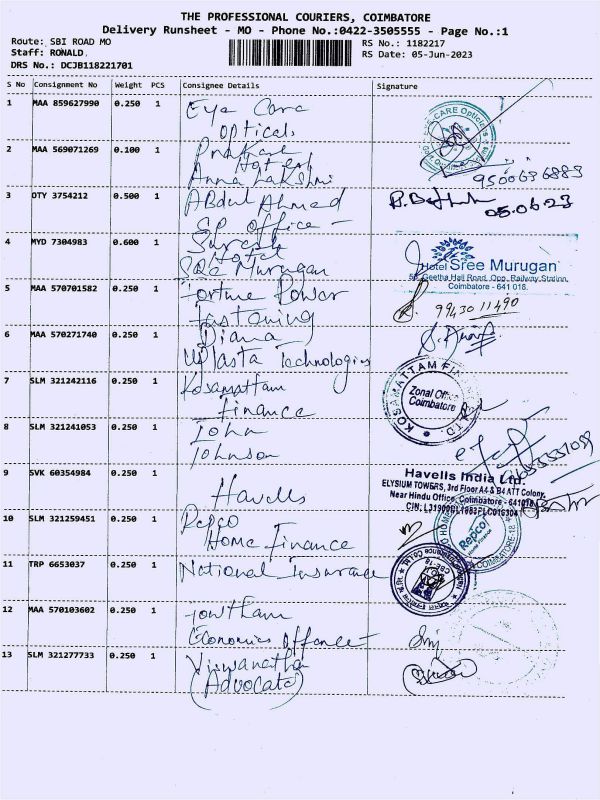 THE PROFESSIONAL COURIERS, COIMBATORE
Delivery Runsheet - MO - Phone No.:0422-3505555 - Page No.:1
Route: SBI ROAD MO RS No.: 1182217
Staff: RONALD. RS Date: 05-Jun-2023
DRS No.: DCJB118221701
S No Consignment No Weight PCS Consignee Details Signature
1 MAA 859627990 0.250 1 Eye Care
Opticals
2 MAA 569071269 0.100 1 Prakash
Hotel
Anna Lakshmi 9500636883
3 OTY 3754212 0.500 1 Abdul Ahmed
GP office - 05.06.23
4 MYD 7304983 0.600 1 Suresh
Hotel
Sree Murugan Hotel Sree Murugan
Geetha Hall Road, Opp. Railway Station,
Coimbatore - 641 018.
5 MAA 570701582 0.250 1 Fortune Power
Fastening 9943011490
6 MAA 570271740 0.250 1 Diana
Technologies
7 SLM 321242116 0.250 1 Kosamattam
Finance KOSAMATTAM
Zonal Office
Coimbatore
8 SLM 321241053 0.250 1 John
Johnson
9 SVK 60354984 0.250 1 Havells Havells India Ltd.
ELYSIUM TOWERS, 3rd Floor A4 & B4 ATT Colony,
Near Hindu Office, Coimbatore - 641018
10 SLM 321259451 0.250 1 Repco
Home Finance Repco
COIMBATORE-18.
11 TRP 6653037 0.250 1 National Insurance
12 MAA 570103602 0.250 1 Gowtham
Economics Offence
13 SLM 321277733 0.250 1 Viswanatha
(Advocate)